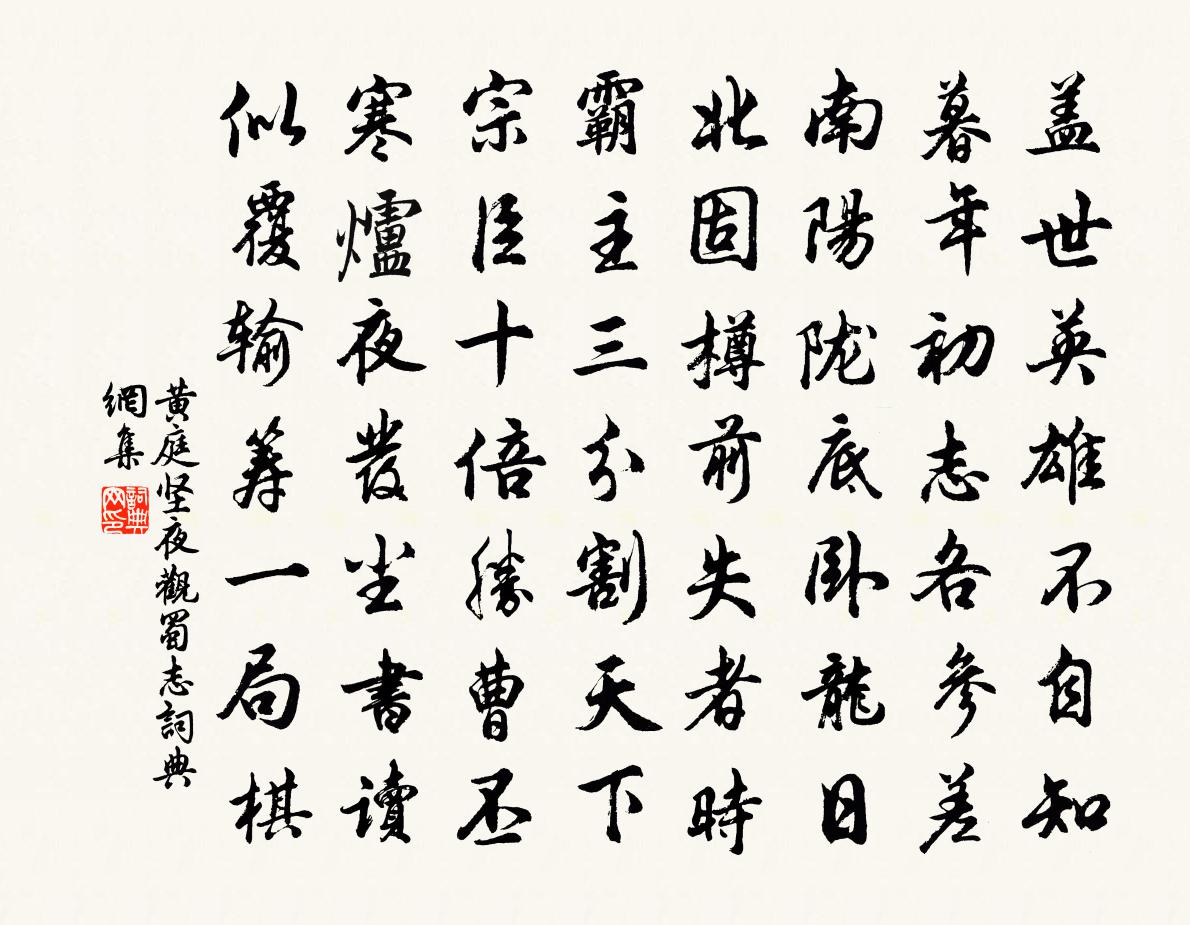 盖世英雄不自知
暮年初志各參差
南陽陇底卧龍日
北固樽前失者時
霸主三分割天下
宗臣十倍勝曹丕
寒爐夜發坐書讀
似覆输筹一局棋
黄庭坚夜觀蜀志詞典
網集
詞典